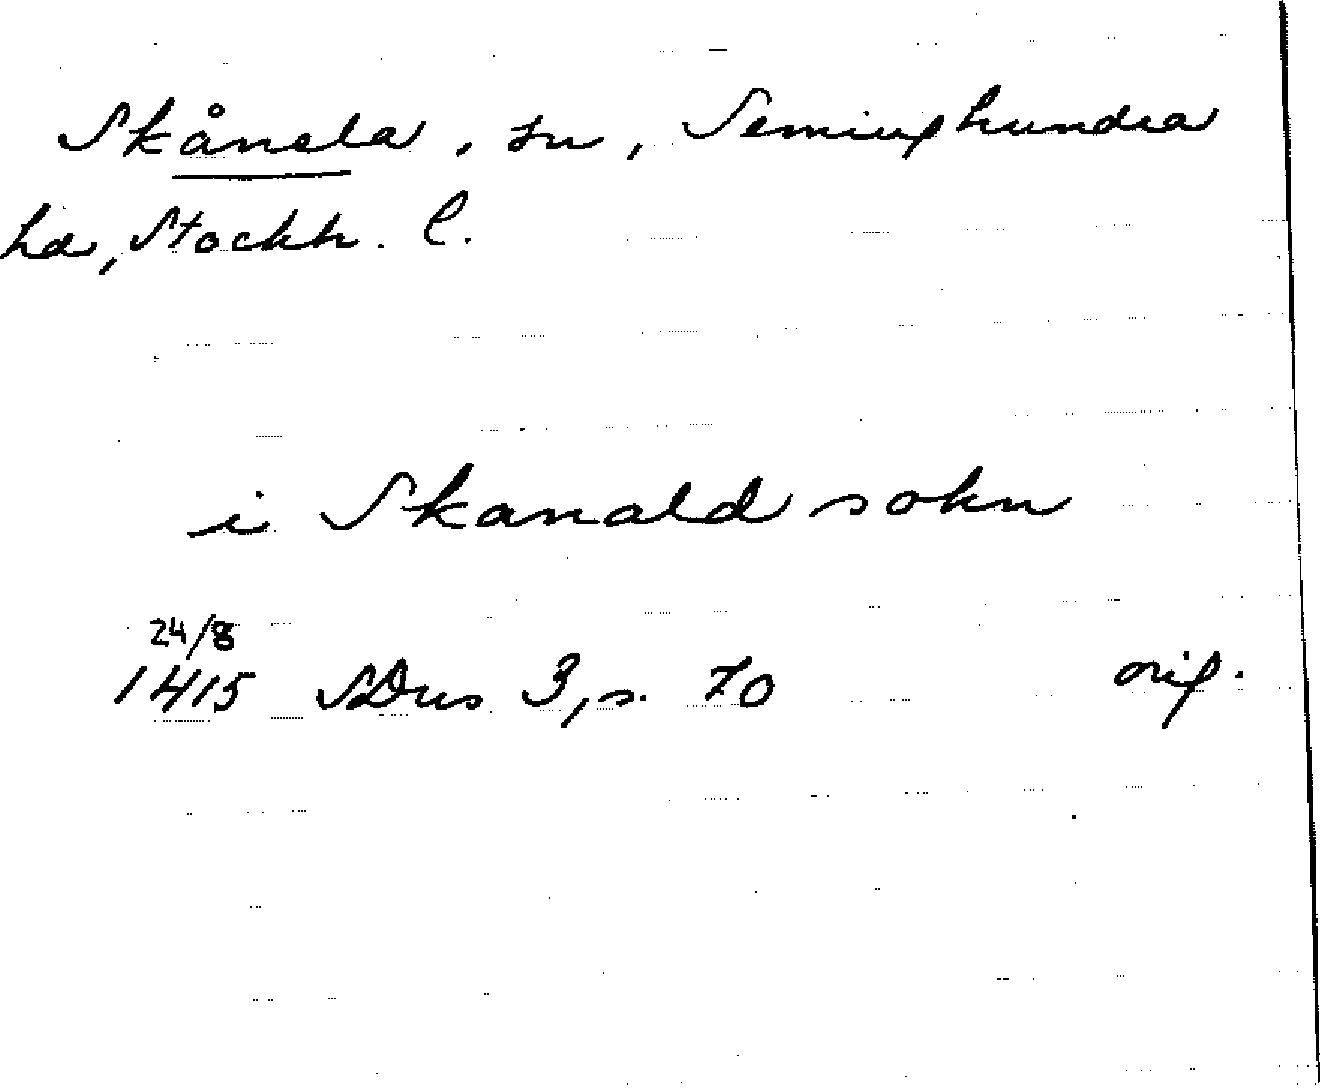 Skånela, sn, Seminghundra
hd, Stockh. l.
i Skanald sokn
24/8
1415 SDns 3, s. 70 orig.